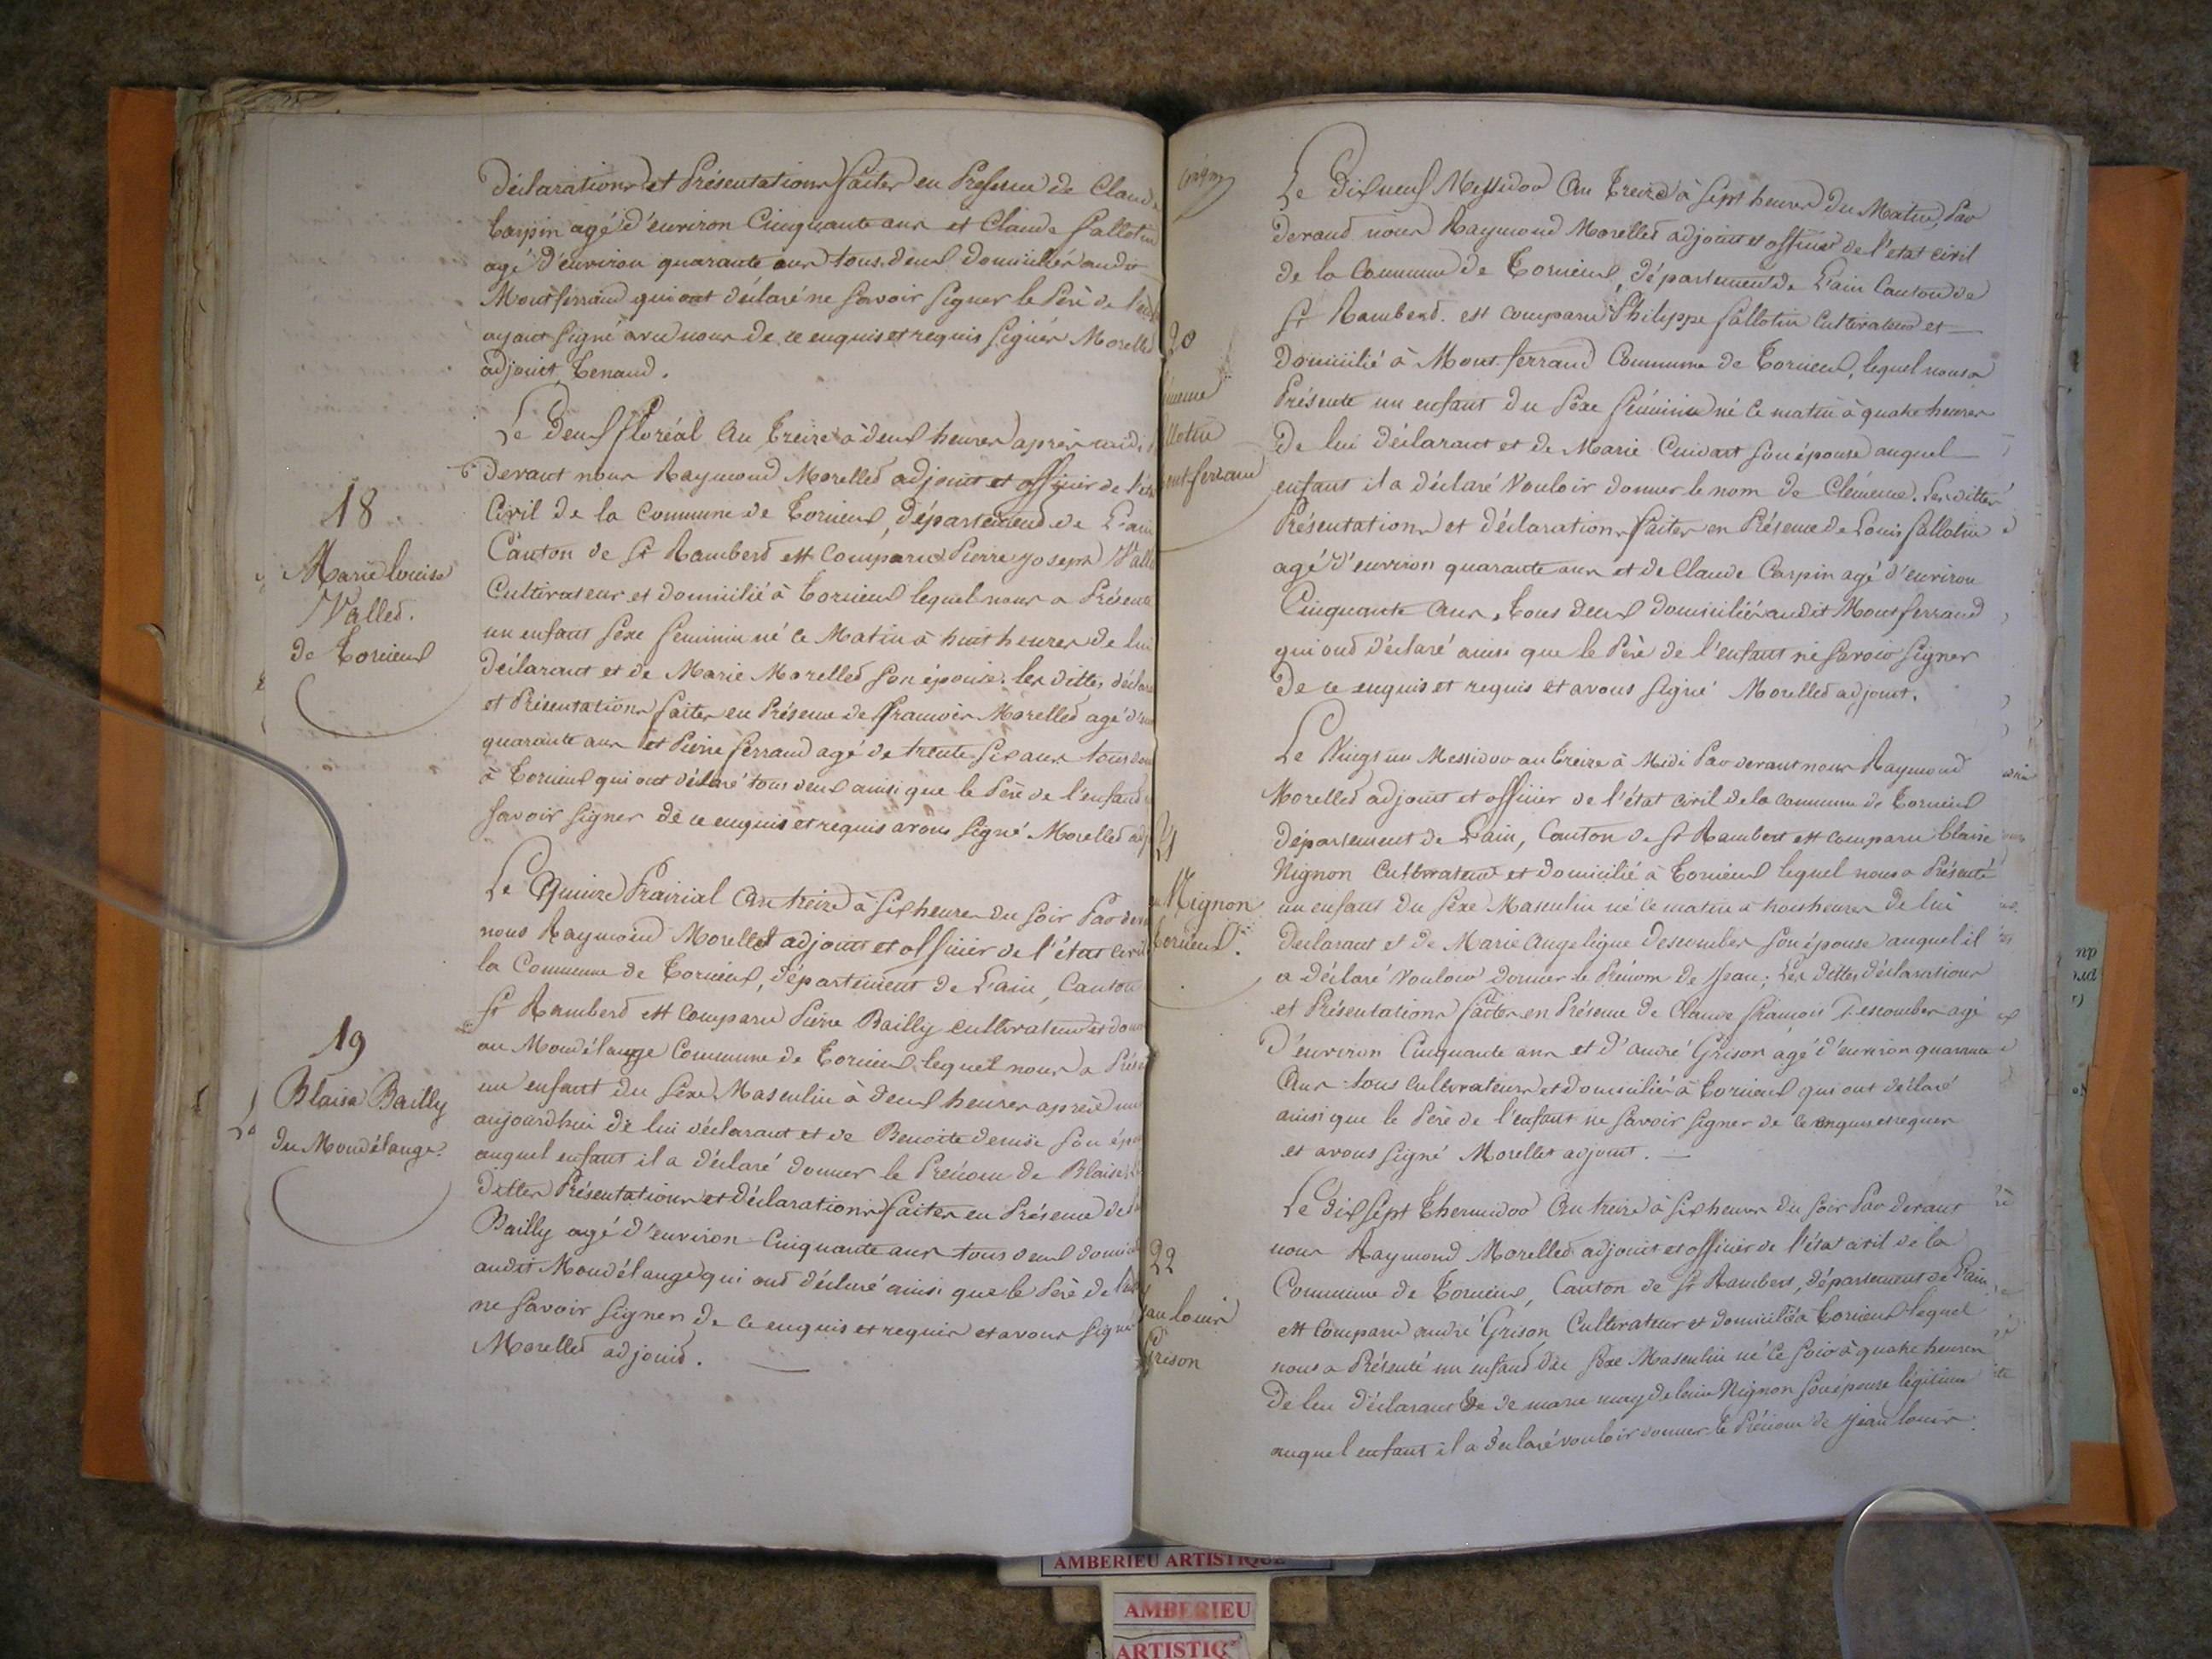 Déclarations et Présentations faites en Présence de Claude
Carpin agé d'environ Cinquante ans et Claude Sallotin
agé d'environ quarante ans tous deux domiciliés audit
Montferrand qui ont déclaré ne savoir signer le Père de l'enf
ayant signé avec nous de ce enquis et requis signés Morellet
adjoint, Tenand.
Le Deux floréal an treize à deux heures après midi
devant nous Raymond Morelled adjoint et officier de l'éta
Civil de la Commune de Torcieux, département de L'ain
Canton de St Ramberd est Comparu Pierre Joseph Valle
Cultivateur et domicilié à Torcieux lequel nous a Présenté
un enfant sexe feminin né ce Matin à huit heures de lui
déclarant et de Marie Morelled son épouse. les dittes déclara
et Présentations faites en Présence de françois Morelled agé d'en
quarante ans et Pierre ferrand agé de trente six ans tous dom
à Torcieux qui ont déclaré tous deux ainsi que le Père de l'enfand
savoir signer de ce enquis et requis avons signé Morelled adj
18
Marie louise
Valled.
de Torcieux
Le Quinze Prairial an treize à six heures du soir Par deva
nous Raymond Morelled adjoint et officier de l'état Civil
la Commune de Torcieux, département de L'ain, Canton
St Ramberd est comparu Pierre Bailly cultivateur et dom
au Mondélange Commune de Torcieux lequel nous a Prése
un enfant du sexe Masculin à deux heures après mi
aujourdhui de lui déclarant et de Benoite denise son épo
auquel enfant il a déclaré donner le Prénom de Blaise, Le
dittes Présentations et déclarations faites en Présence de
Bailly agé d'environ Cinquante ans tous deux domicil
audit Mondélange qui ond déclaré ainsi que le Père de l'en
ne savoir signer de ce enquis et requis et avons signé
Morelled adjoind.
19
Blaise Bailly
du Mondélange.
Le Dixneuf Messidor an treize à sept heures du Matin, Par
devand nous Raymond Morelled adjoint et officier de l'etat civil
de la Commune de Torcieux, département de L'ain Canton de
St Ramberd. est comparu Philippe Sallotin Cultivateur et
domicilié à Montferrand Commune de Torcieux, lequel nous a
Présenté un enfant du sexe féminin né ce matin à quatre heures
de lui déclarant et de Marie Cuivat son épouse auquel
enfant il a déclaré Vouloir donner le nom de Clémence. Les dittes
Présentations et déclarations faites en Présence de Louis Sallotin
agé d'environ quarante ans et de Claude Carpin agé d'environ
Cinquante ans, tous deux domiciliés audit Montferrand
qui ond déclaré ainsi que le Père de l'enfant ne savoir signer
de ce enquis et requis et avons signé Morelled adjoint.
20
lémence
llotin
ont ferrand
Le Vingt un Messidor an treize à Midi Par devant nous Raymond
Morelled adjoint et officier de l'état civil de la commune de Torcieux
département de L'ain, Canton de St Rambert est comparu blaise
Nignon Cultivateur et domicilié à Torcieux lequel nous a Présenté
un enfant du sexe Masculin né ce matin à trois heures de lui
déclarant et de Marie Angelique descombes son épouse auquel il
a déclaré Vouloir donner le Prénom de Jean; Les dittes déclarations
et Présentations faites en Présence de Claude françois Descombes agé
d'environ Cinquante ans et d'andré Grison agé d'environ quarante
ans tous cultivateurs et domicilié à Torcieux qui ont déclaré
ainsi que le Père de l'enfant ne savoir signer de ce enquis et requis
et avons signé Morellet adjoint.
21
Nignon
Torcieux.
Le dix sept Thermidor an treize à six heures du soir Par devant
nous Raymond Morelled adjoint et officier de l'état civil de la
Commune de Torcieux, Canton de St Rambert, département de L'ain
est comparu andré Grison Cultivateur et domicilié à Torcieux lequel
nous a Présenté un enfand du sexe Masculin né ce soir à quatre heures
de lui déclarant et de marie magdeleine Nignon son épouse légitime
auquel enfant il a déclaré vouloir donner le Prénom de Jean louis.
22
ean louis
Grison
AMBERIEU ARTISTIQUE
AMBERIEU
ARTISTIQ